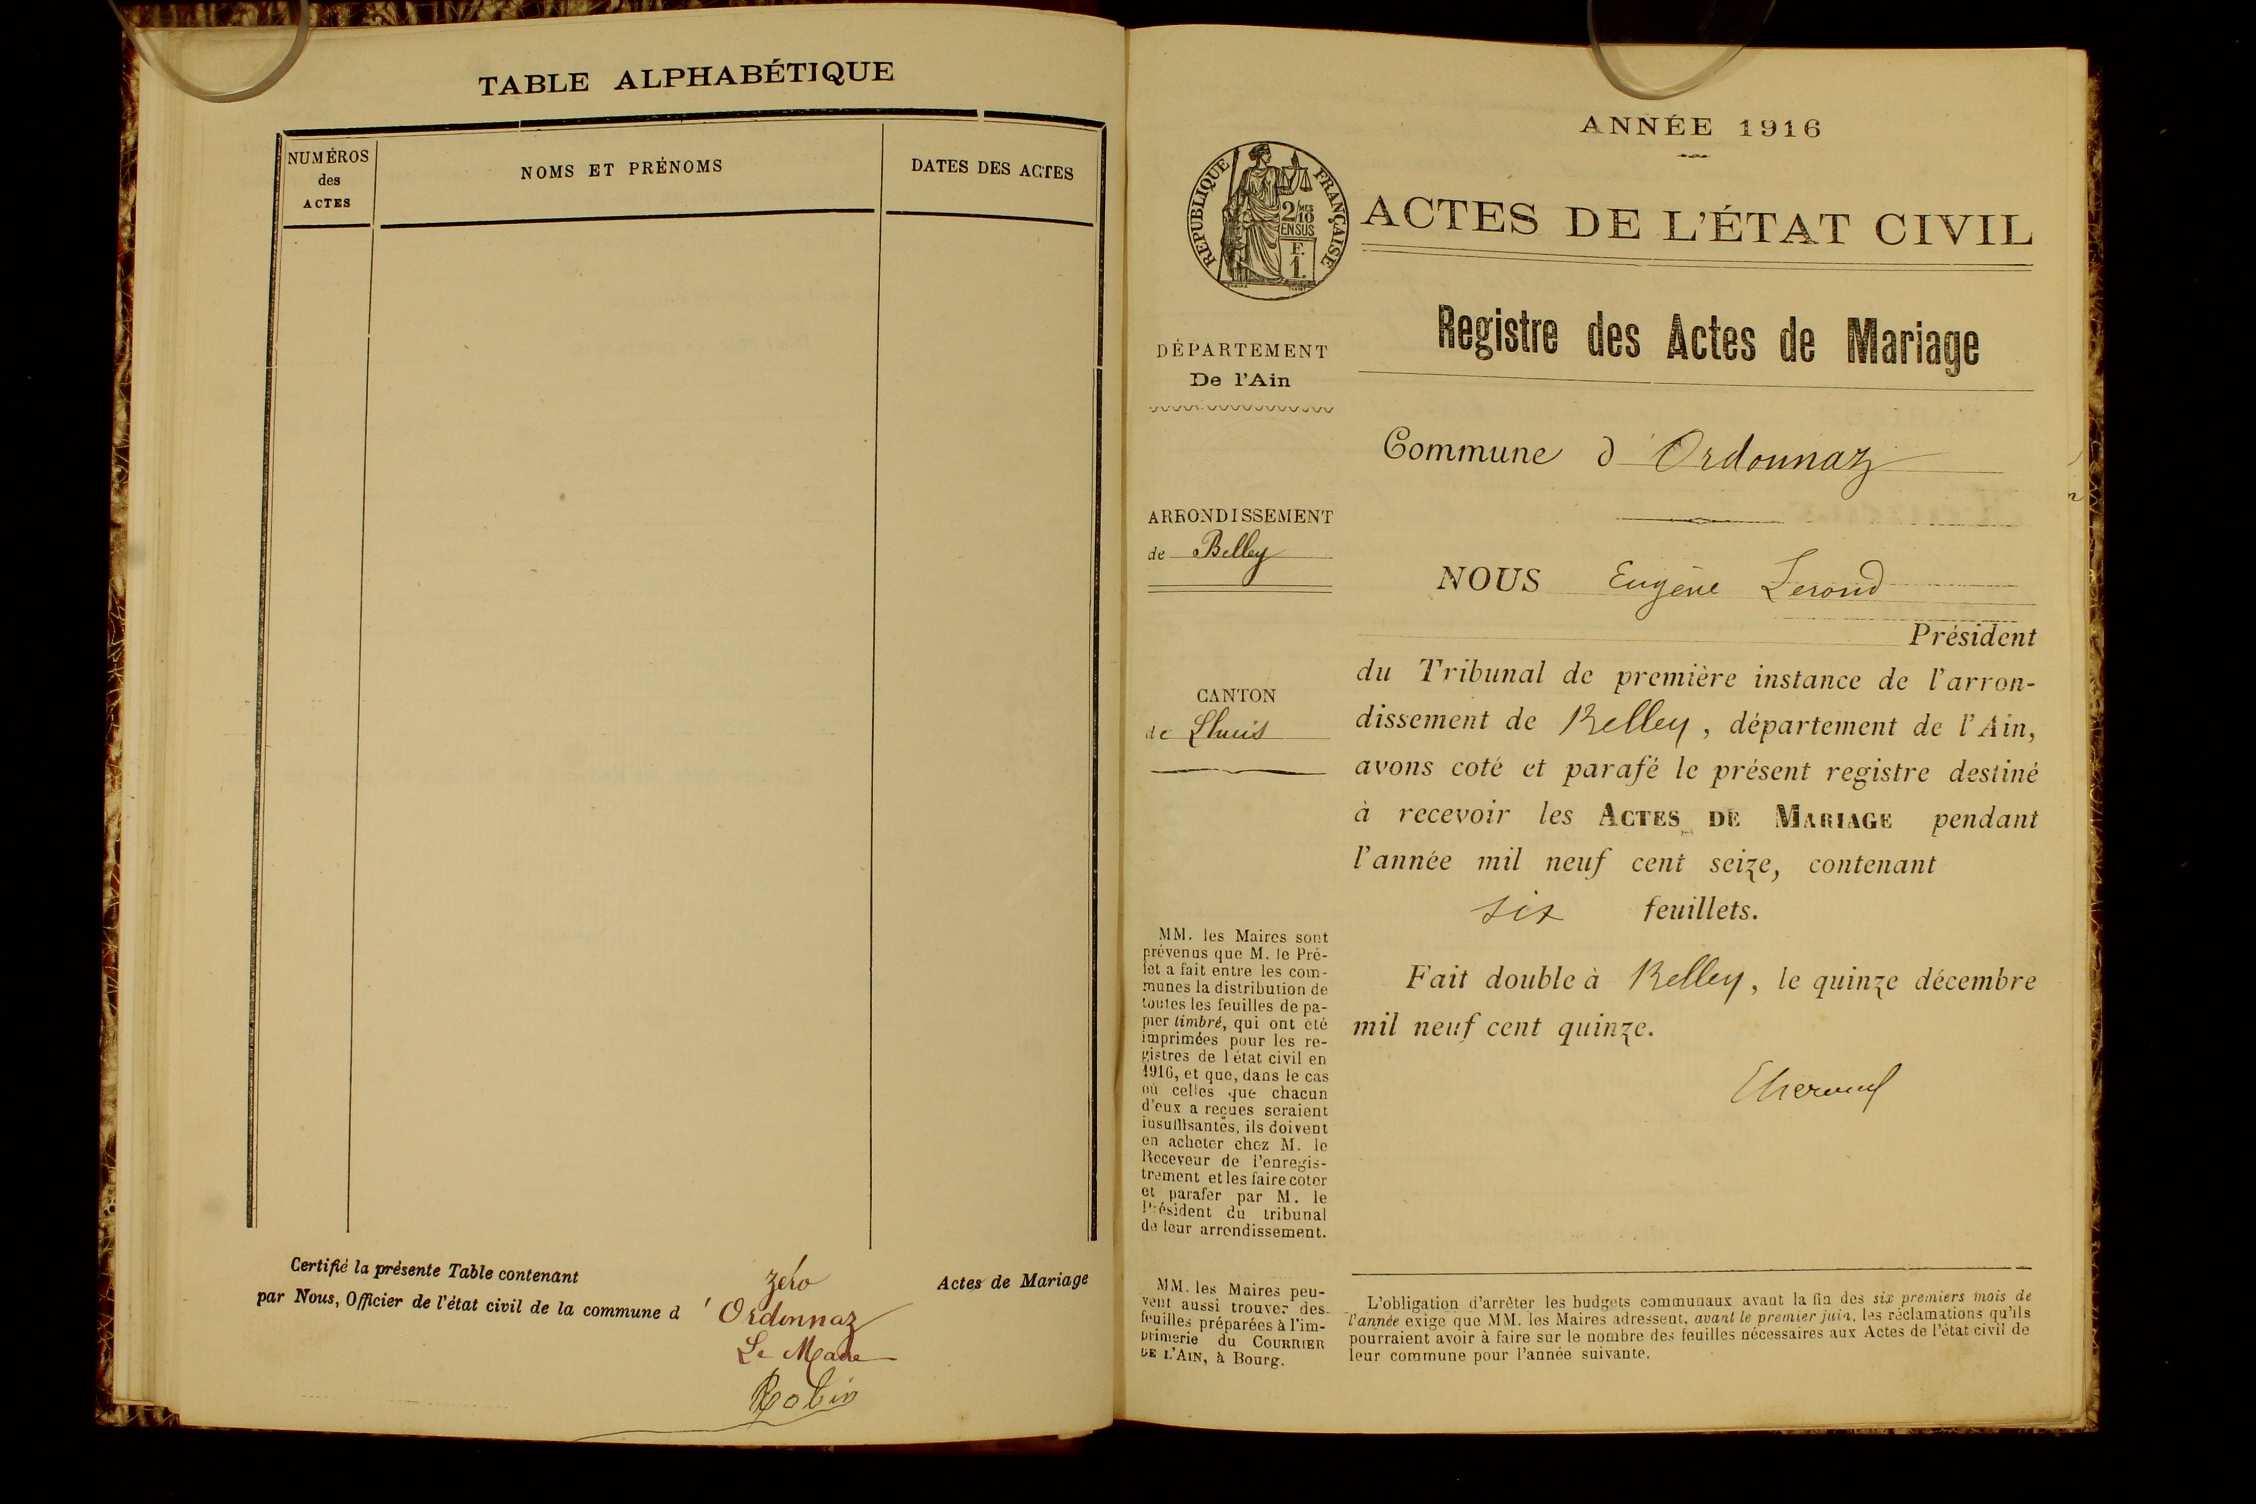 TABLE ALPHABÉTIQUE
NUMÉROS
des
ACTES
NOMS ET PRÉNOMS
DATES DES ACTES
Certifié la présente Table contenant zéro Actes de Mariage
par Nous, Officier de l'état civil de la commune d'Ordonnaz
Le Maire
Robin
ANNÉE 1916
REPUBLIQUE FRANÇAISE
2/10 MES
EN SUS
F.
1.
ACTES DE L'ÉTAT CIVIL
Registre des Actes de Mariage
DÉPARTEMENT
De l'Ain
ARRONDISSEMENT
de Belley
CANTON
de Lhuis
MM. les Maires sont
prévenus que M. le Pré-
fet a fait entre les com-
munes la distribution de
toutes les feuilles de pa-
pier timbré, qui ont été
imprimées pour les re-
gistres de l'état civil en
1916, et que, dans le cas
où celles que chacun
d'eux a reçues seraient
insuffisantes, ils doivent
en acheter chez M. le
Receveur de l'enregis-
trement et les faire coter
et parafer par M. le
Président du tribunal
de leur arrondissement.
MM. les Maires peu-
vent aussi trouver des
feuilles préparées à l'im-
primerie du COURRIER
DE L'AIN, à Bourg.
Commune d'Ordonnaz
NOUS Eugène Lerond
Président
du Tribunal de première instance de l'arron-
dissement de Belley, département de l'Ain,
avons coté et parafé le présent registre destiné
à recevoir les ACTES DE MARIAGE pendant
l'année mil neuf cent seize, contenant
six feuillets.
Fait double à Belley, le quinze décembre
mil neuf cent quinze.
L'obligation d'arrêter les budgets communaux avant la fin des six premiers mois de
l'année exige que MM. les Maires adressent, avant le premier juin, les réclamations qu'ils
pourraient avoir à faire sur le nombre des feuilles nécessaires aux Actes de l'état civil de
leur commune pour l'année suivante.